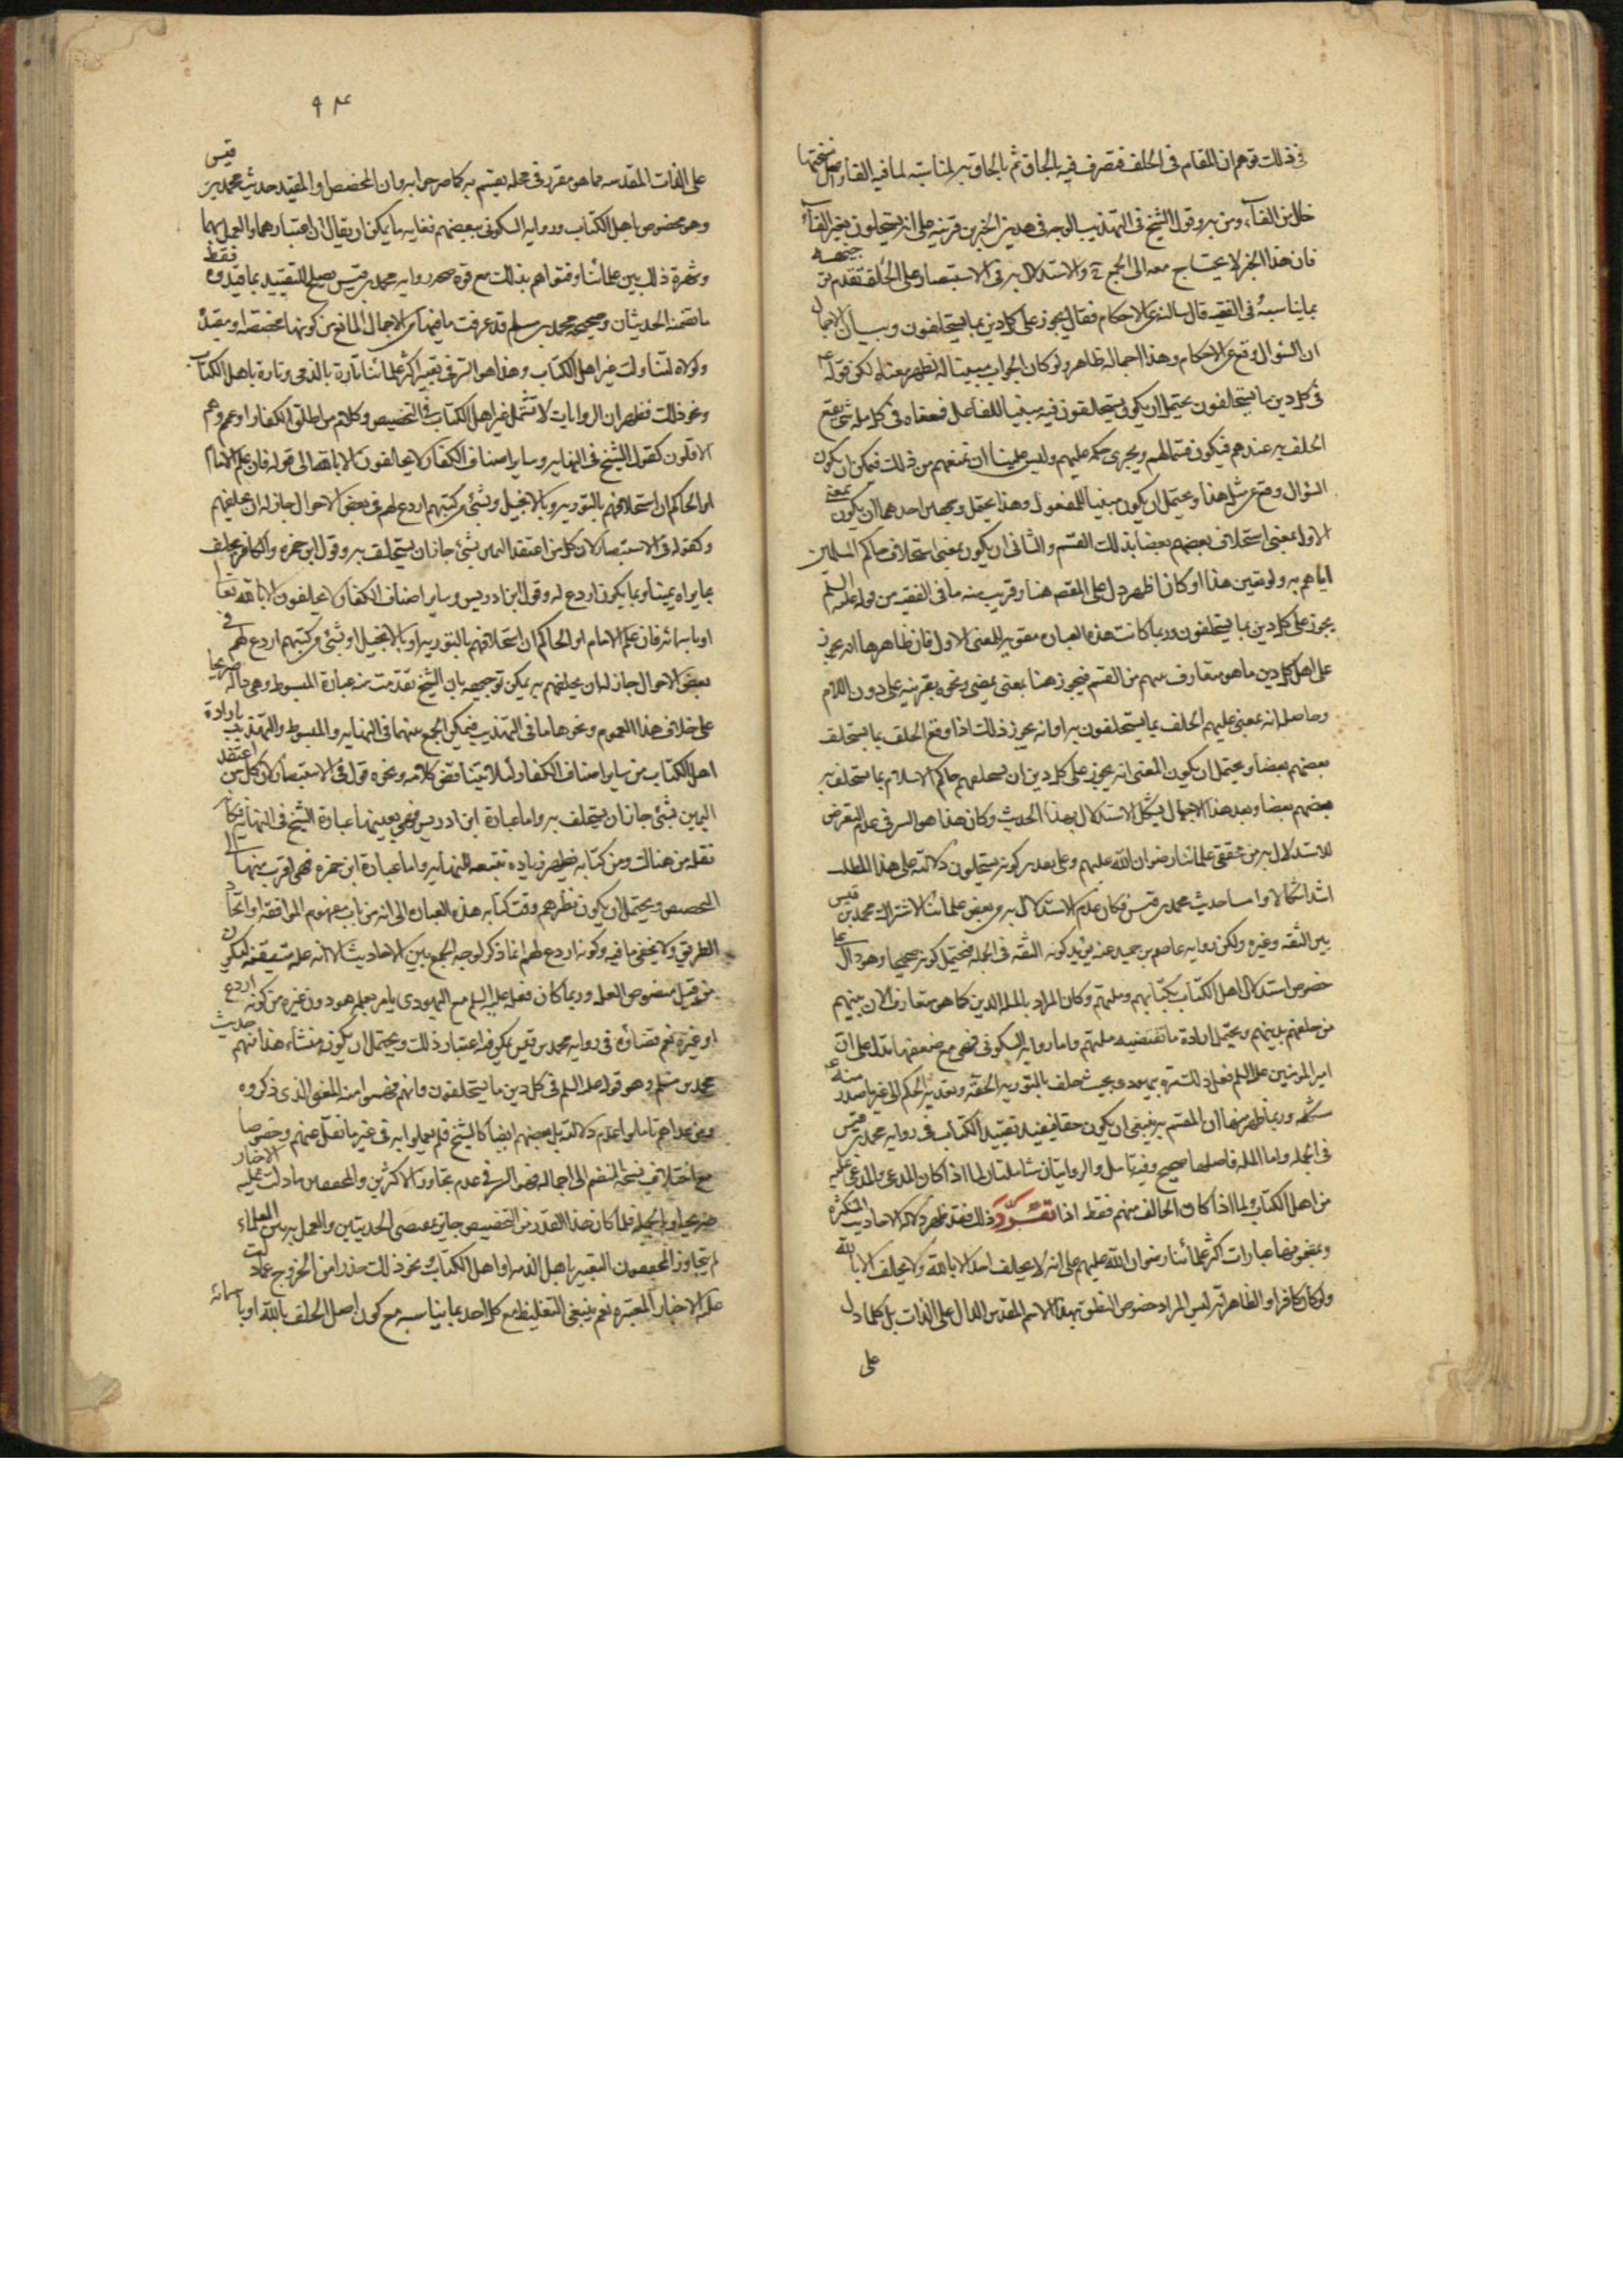 في ذلك توهم ان المقام في الحلف فتصرف فيه بالحاق ثم بالحاق به لمناسبته لما فيه الفاء واصل نسختها
خال من الفاء ومن به وقول الشيخ في التهذيب الوجه في هذين الخبرين قرينه على انه يستحلون بغير الفاء
فان هذا الخبر لا يحتاج معه الى الجمع والاستدلال به في الاستبصار على الحلف تقدم
بما يناسبه في الفقيه قال سالته عن الاحكام فقال يجوز على كل دين بما يستحلفون وبيان الاجمال
ان السؤال وقع عن الاحكام وهذا اجماله ظاهر ولو كان الجواب مبينا له لظهر معناه لكن قوله
في كل دين ما يستحلفون يحتمل ان يكون يستحلفون فيه مبنيا للفاعل فمعناه في كل مله شئ يقع
الحلف به عندهم فيكون قسما لهم ويجري حكمه عليهم وليس علينا ان نمنعهم من ذلك فيمكن ان يكون
السؤال وقع عن مثل هذا ويحتمل ان يكون مبنيا للمفعول وهذا يحتمل وجهين احدهما ان يكون بمعنى
الاول بمعنى استحلاف بعضهم بعضا بذلك القسم والثاني ان يكون بمعنى استحلاف حاكم المسلمين
اياهم به ولو تعين هذا او كان اظهر دل على المقصد هنا وقريب منه ما في الفقيه من قوله عليه السلم
يجوز على كل دين بما يستحلفون وربما كانت هذه العبارة مقويه للمعنى الاول فان ظاهرها انه يجوز
على اهل كل دين ما هو متعارف بينهم من القسم فيجوز هنا بمعنى يمضي ونحوه بقرينه على دون اللام
وحاصله انه بمعنى عليهم الحلف بما يستحلفون به او انه يجوز ذلك اذا وقع الحلف بما يستحلف
بعضهم بعضا ويحتمل ان يكون المعنى انه يجوز على كل دين ان يستحلفهم حاكم الاسلام بما يستحلف به
بعضهم بعضا وبعد هذا الاجمال يشكل الاستدلال بهذا الحديث وكان هذا هو السر في عدم التعرض
للاستدلال به من محققي علمائنا رضوان الله عليهم وعلى تقدير كونه يستحلون دلالته على هذا المطلب
اشد اشكالا واما حديث محمد بن قيس فكان عدم الاستدلال به من بعض علمائنا لاشتراك محمد بن قيس
بين الثقه وغيره ولكن روايه عاصم بن حميد عنه يؤيد كونه الثقه في الجمله فيحتمل كونه صحيحا وهو دال على
خصوص استدلال اهل الكتاب بكتابهم وملتهم وكان المراد بالمله الدين كما هو متعارف الان بينهم
من حلفهم بدينهم ويحتمل ارادة ما تقتضيه ملتهم واما روايه السكوني فهي مع ضعفها تدل على ان
امير المؤمنين عليه السلم فعل ذلك مرة بيهودي بحيث حلف بالتوريه الحقه وتعديه الحكم الى غير ما صدر منه
مشكل وربما ظهر منها ان المقسم به ينبغي ان يكون حقا فيفيد تقييد الكتاب في روايه محمد بن قيس
في الجمله واما المله فاصلها صحيح وفيه تامل والروايتان شاملتان لما اذا كان المدعي والمدعى عليه
من اهل الكتاب ولما اذا كان الحالف منهم فقط اذا تقرر ذلك فقد ظهر دلاله الاحاديث المتكثره
وبعضها عبارات اكثر علمائنا رضوان الله عليهم على انه لا يحلف احد الا بالله ولا يحلف الا بالله
ولو كان كافرا والظاهر انه ليس المراد خصوص النطق بهذا الاسم المقدس الدال على الذات بل كلما دل
على
٩٤
على الذات المقدسه مما هو مقرر في محله يقسم به كما صرحوا به وان المخصص او المقيد حديث محمد بن قيس
وهو مخصوص باهل الكتاب وروايه السكوني ببعضهم فغايه ما يمكن ان يقال ان اعتبارهما والعمل بهما
وشهرة ذلك بين علمائنا وفتواهم بذلك مع قوة صحه روايه محمد بن قيس يصلح للتقييد بما قيدوه فقط
ما تضمنه الحديثان وصحيحه محمد بن مسلم قد عرفت ما فيها من الاجمال المانع من كونها مخصصه او مقيده
ولولاه لتناولت غير اهل الكتاب وهذا هو السر في تعبير اكثر علمائنا تارة بالذمي وتارة باهل الكتاب
ونحو ذلك فظهر ان الروايات لا تشمل غير اهل الكتاب في التخصيص وكلام من اطلق الكفار او عمم وهم
الاقلون كقول الشيخ في النهايه وساير اصناف الكفار لا يحالفون الا بالله الى قوله فان علم الامام
او الحاكم ان استحلافهم بالتوريه وبالانجيل وبشئ من كتبهم اردع لهم في بعض الاحوال جاز له ان يحلفهم
وكقوله في الاستبصار لان كل من اعتقد اليمين بشئ جاز ان يستحلف به وقول ابن حمزه والكافر يحلف
بما يراه يمينا وبما يكون اردع له وقول ابن ادريس وساير اصناف الكفار لا يحلفون الا بالله تعالى
او باسمائه فان علم الامام او الحاكم ان استحلافهم بالتوريه او بالانجيل او بشئ من كتبهم اردع لهم في
بعض الاحوال جاز له ان يحلفهم به يمكن توجيهه بان الشيخ تقدمت منه عبارة المبسوط وهي داله صريحا
على خلاف هذا العموم ونحوها ما في التهذيب فيمكن الجمع بينهما في النهايه والمبسوط والتهذيب بارادة
اهل الكتاب من ساير اصناف الكفار لئلا يتناقض كلامه ونحوه قوله في الاستبصار لان كل من اعتقد
اليمين بشئ جاز ان يستحلف به واما عبارة ابن ادريس فهي بعينها عبارة الشيخ في النهايه فكانه
نقله من هناك ومن كتابه يظهر زياده تتبعه للنهايه واما عبارة ابن حمزه فهي اقرب منها الى
التخصيص ويحتمل ان يكون نظرهم وقت كتابه هذه العباره الى انه من باب مفهوم الموافقه او اتحاد
الطريق ولا يخفى ما فيه وكونه اردع لهم انما ذكر لوجه الجمع بين الاحاديث لا انه عله متيقنه ليكون
من قبيل منصوص العله وربما كان فعله عليه السلم مع اليهودي بامر يعلمه هو دون غيره من كونه اردع
او غيره نعم قضاؤه في روايه محمد بن قيس يكون فيه اعتبار ذلك ويحتمل ان يكون منشاء هذا منهم حديث
محمد بن مسلم وهو قوله عليه السلم في كل دين ما يستحلفون فانهم فهموا منه المعنى الذي ذكروه
ومن عداهم تاملوا عدم دلالته بل بعضهم ايضا كالشيخ فلم يعملوا به في غير ما نقل عنهم وخصوصا
مع اختلاف نسخه المنضم الى اجماله فهو السر في عدم تجاوز الاكثرين والمحققين ما دلت عليه الاخبار
صريحا وبالجمله فلما كان هذا القدر من التخصيص جايز بمقتضى الحديثين والعمل به بين العلماء
لم يتجاوز المحققون التعبير باهل الذمه او اهل الكتاب ونحو ذلك حذرا من الخروج عما دلت
عليه الاخبار المعتبره نعم ينبغي التغليظ مع كل احد بما يناسبه مع كون اصل الحلف بالله او باسمائه